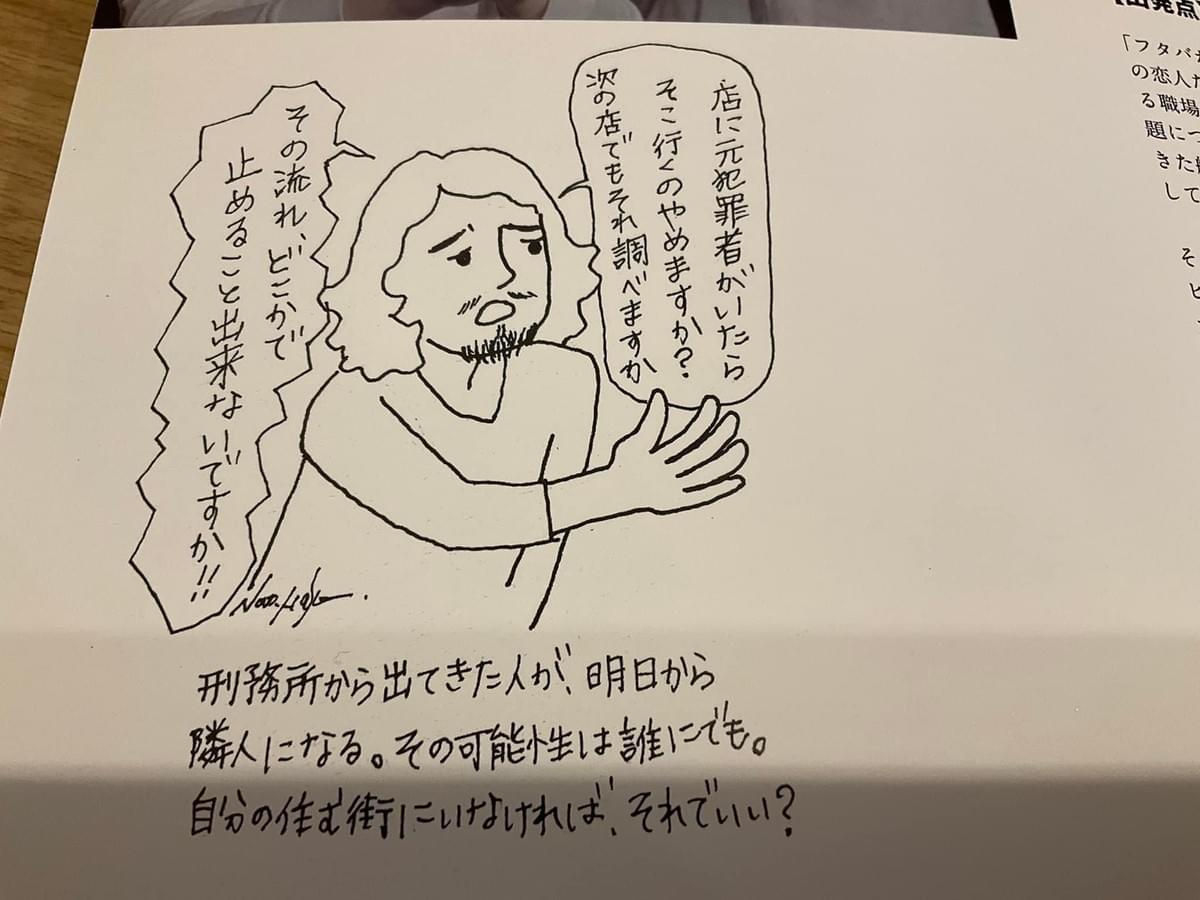 店に元犯罪者がいたら
そこ行くのやめますか?
次の店でもそれ調べますか
その流れ、どこかで
止めること出来ないですか!!
刑務所から出てきた人が、明日から
隣人になる。その可能性は誰にでも。
自分の住む街にいなければ、それでいい?
【出発点
「フタバ
の恋人
る職場
題につ
きた
して
そ